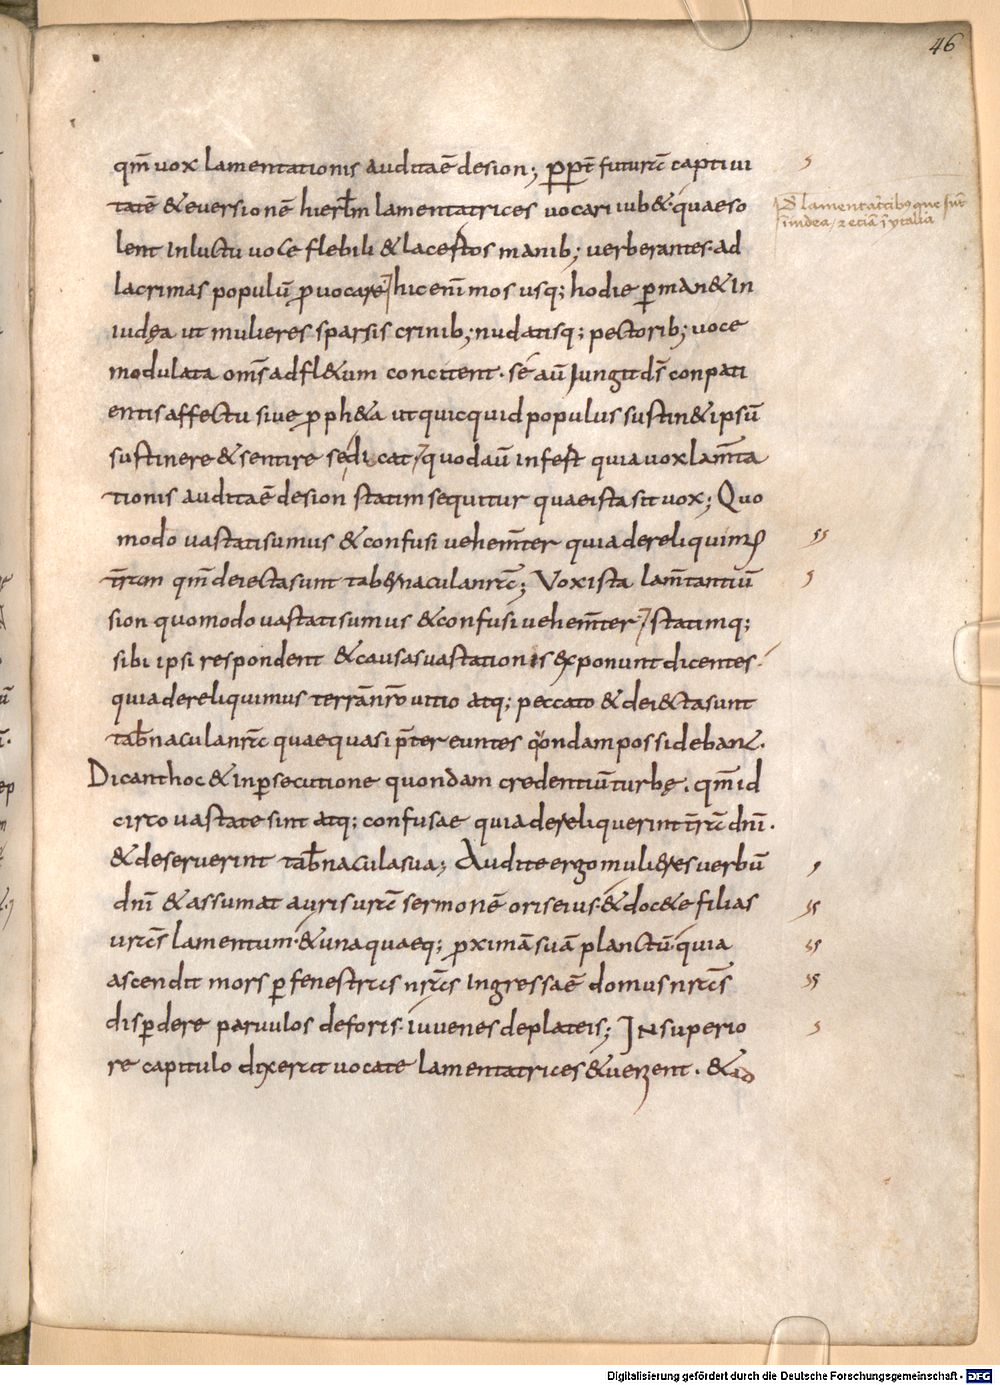 46
qm̄ uox lamentationis audita ē desion; p̱pt̄ futurā captiui
tatē & euersionē hierl̄m lamentatrices uocari iub&· quae so
lent inluctu uoce flebili & lacertos manib; uerberantes· ad
lacrimas populū ꝓuocare / hic enī mos usq; hodie ꝑman& in
iudęa ut mulieres sparsis crinib; nudatisq; pectorib; uoce
modulata om̄s adfl&um concitent· sé aū Jungit ds̄ conpati
entis affectu siue ꝓph&a ut quicquid populus sustin& ipsū
sustinere & sentire se dicat / quod aū infert quia uox lam̄ta
tionis audita ē desion statim sequitur quae ista sit uox; Quo
modo uastati sumus & confusi uehem̄ter quia dereliquimus
t̄ram qm̄ deiecta sunt tab&naculanr̄a; Vox ista lam̄tantiū
sion quomodo uastati sumus & confusi uehem̄ter / statimq;
sibi ipsi respondent & causas uastationis exponunt dicentes·
quia dereliquimus terrā nr̄o uitio atq; peccato & deiecta sunt
tab̄nacula nr̄a quae quasi p̄tereuntes qōndam possidebant.
Dicant hoc & in ꝑsecutione quondam credentiū turbę. qm̄ id
circo uastate sint atq; confusae quia dereliquerint t̄rā dn̄i.
& deseruerint tab̄nacula sua; Audite ergo mulieres uerbū
dn̄i & assumat auris ur̄a sermonē oris eius· & doc&e filias
ur̄as lamentum· & unaquaeq; ꝓximā suā planctū· quia
ascendit mors ꝑ fenestras nr̄as ingressa ē domus nr̄as
disꝑdere paruulos deforis· iuuenes deplateis; Jn superio
re capitulo dixerat uocate lamentatrices & ueniant. & ad